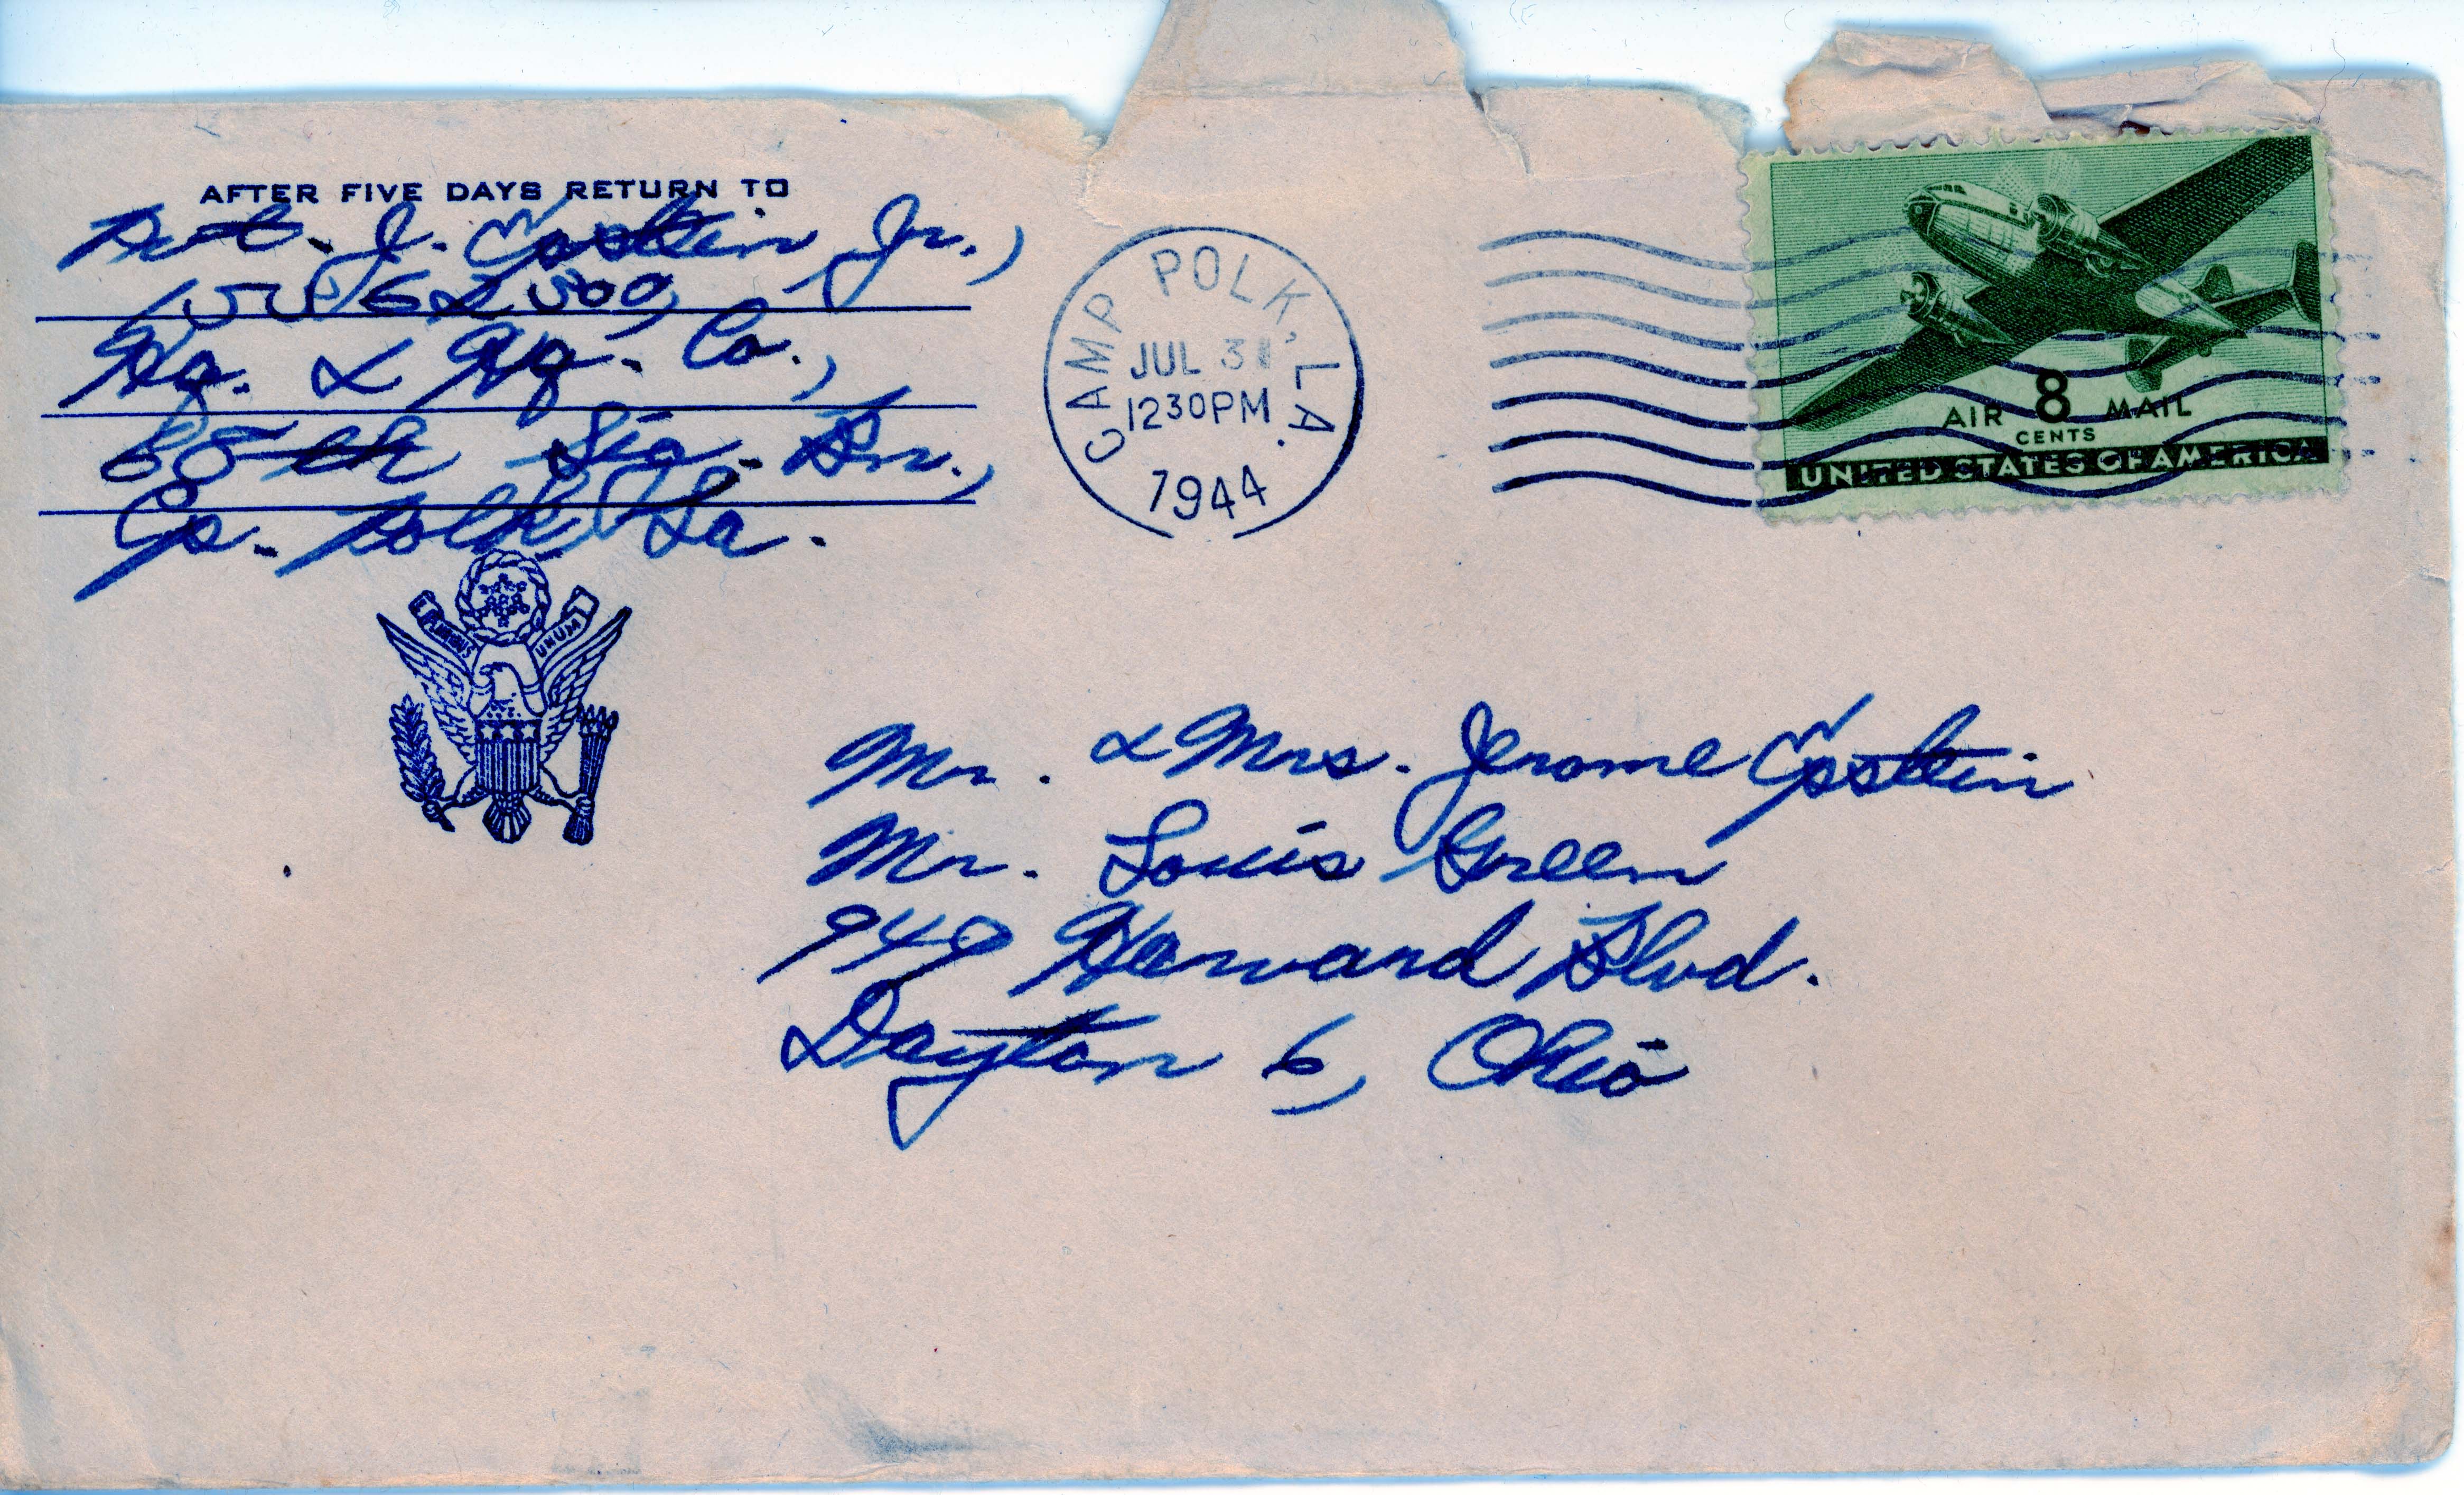 AFTER FIVE DAYS RETURN TO
Pvt. J. Epstein Jr.,
Hq. & Hq. Co.,
68th Sig. Bn.,
Cp. Polk, La.
CAMP POLK, LA.
JUL 31
1230PM
1944
AIR 8 MAIL
CENTS
UNITED STATES OF AMERICA
E PLURIBUS UNUM
Mr. & Mrs. Jerome Epstein
Mr. Louis Green
949 Harvard Blvd.
Dayton 6, Ohio